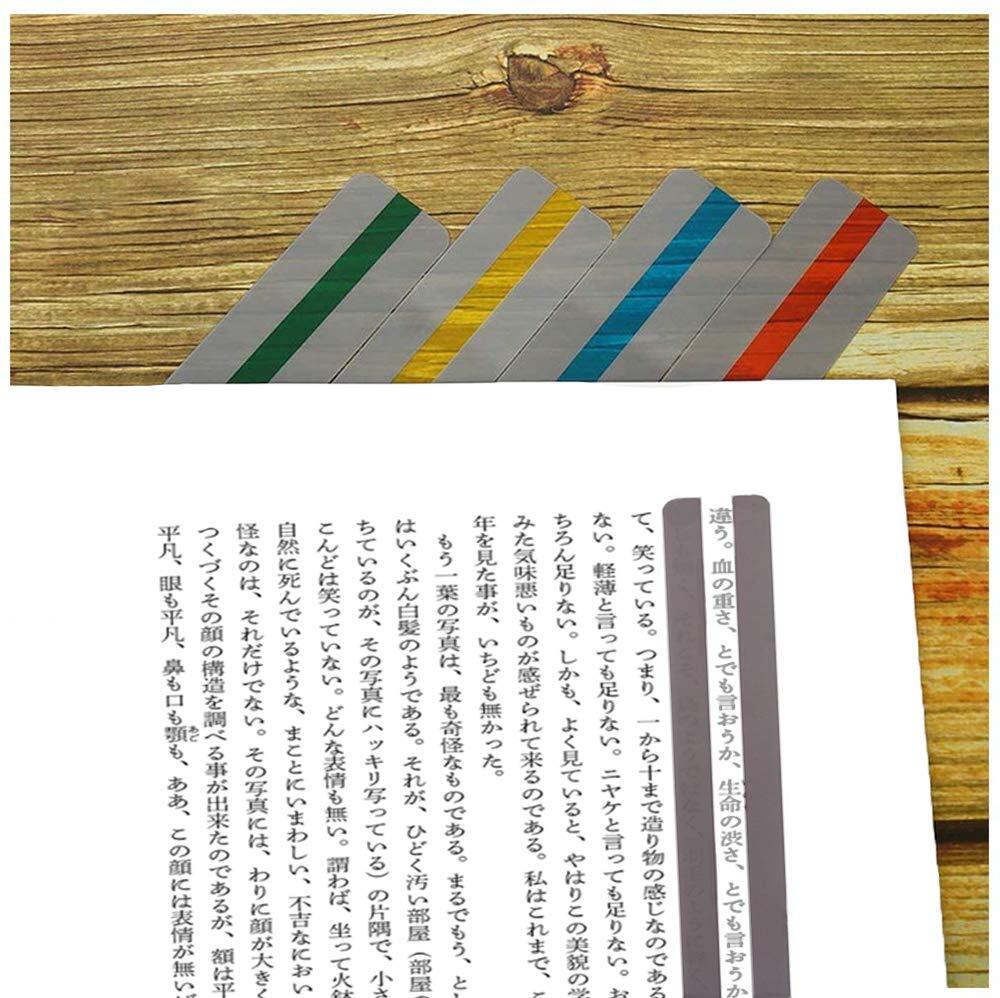 違う。血の重さ、とでも言おうか、生命の渋さ、とでも言おうか
て、笑っている。つまり、一から十まで造り物の感じなのである
ない。軽薄と言っても足りない。ニヤケと言っても足りない。お
ちろん足りない。しかも、よく見ていると、やはりこの美貌の学
みた気味悪いものが感ぜられて来るのである。私はこれまで、こ
年を見た事が、いちども無かった。
もう一葉の写真は、最も奇怪なものである。まるでもう、とし
はいくぶん白髪のようである。それが、ひどく汚い部屋（部屋の
ちているのが、その写真にハッキリ写っている）の片隅で、小さ
こんどは笑っていない。どんな表情も無い。謂わば、坐って火鉢
自然に死んでいるような、まことにいまわしい、不吉なにおい
怪なのは、それだけでない。その写真には、わりに顔が大きく
つくづくその顔の構造を調べる事が出来たのであるが、額は平
平凡、眼も平凡、鼻も口も顎も、ああ、この顔には表情が無いば